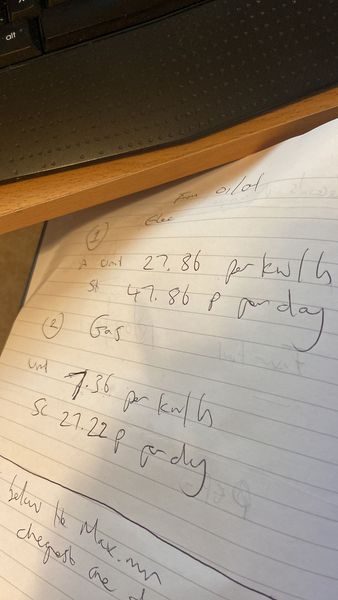 alt
From 01/01
Elec
①
A Unit 27.86 per kw/h
St 47.86 p per day
② Gas
Unit 7.36 per kw/h
SC 27.22 p per day
below the Max.
cheapest one